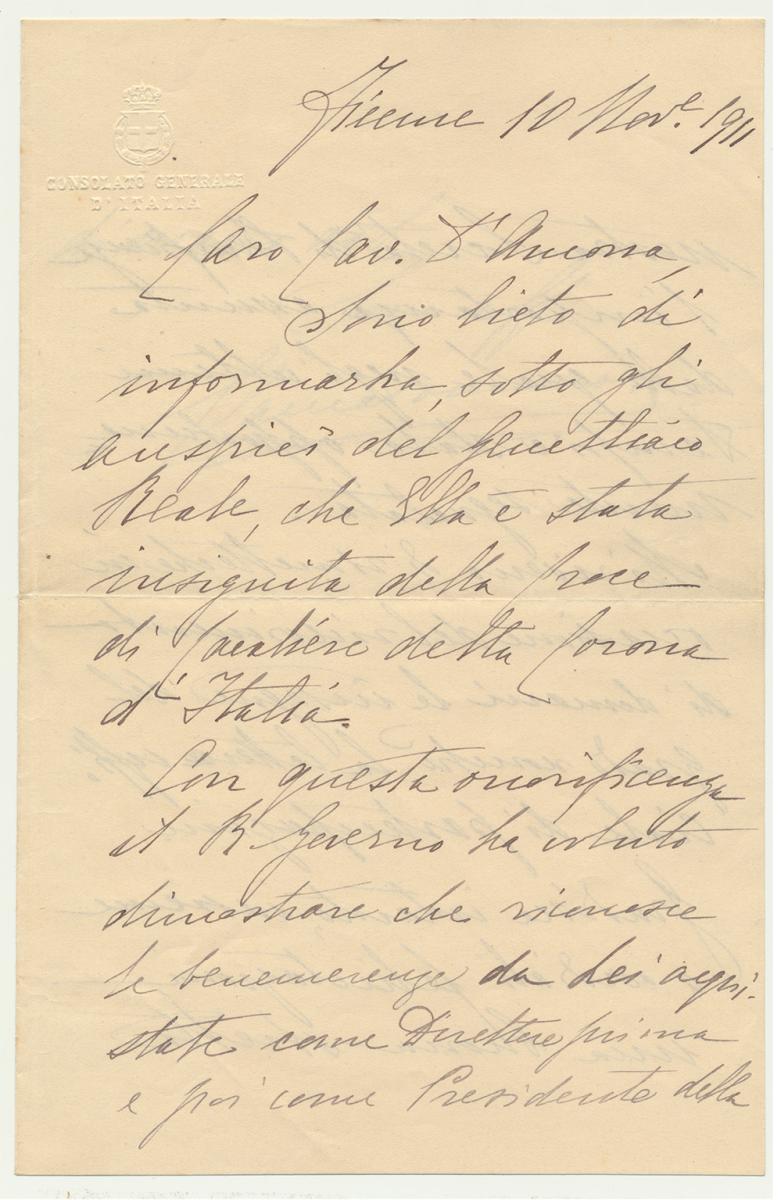 CONSOLATO GENERALE
D'ITALIA
Fiume 10 Nov.e 1911
Caro Cav. D'Ancona,
Sono lieto di
informarla, sotto gli
auspici del Genetliaco
Reale, che Ella è stata
insignita della Croce
di Cavaliere della Corona
d'Italia.
Con questa onorificenza
il R. Governo ha voluto
dimostrare che riconosce
le benemerenze da Lei acqui-
state come Direttore prima
e poi come Presidente della